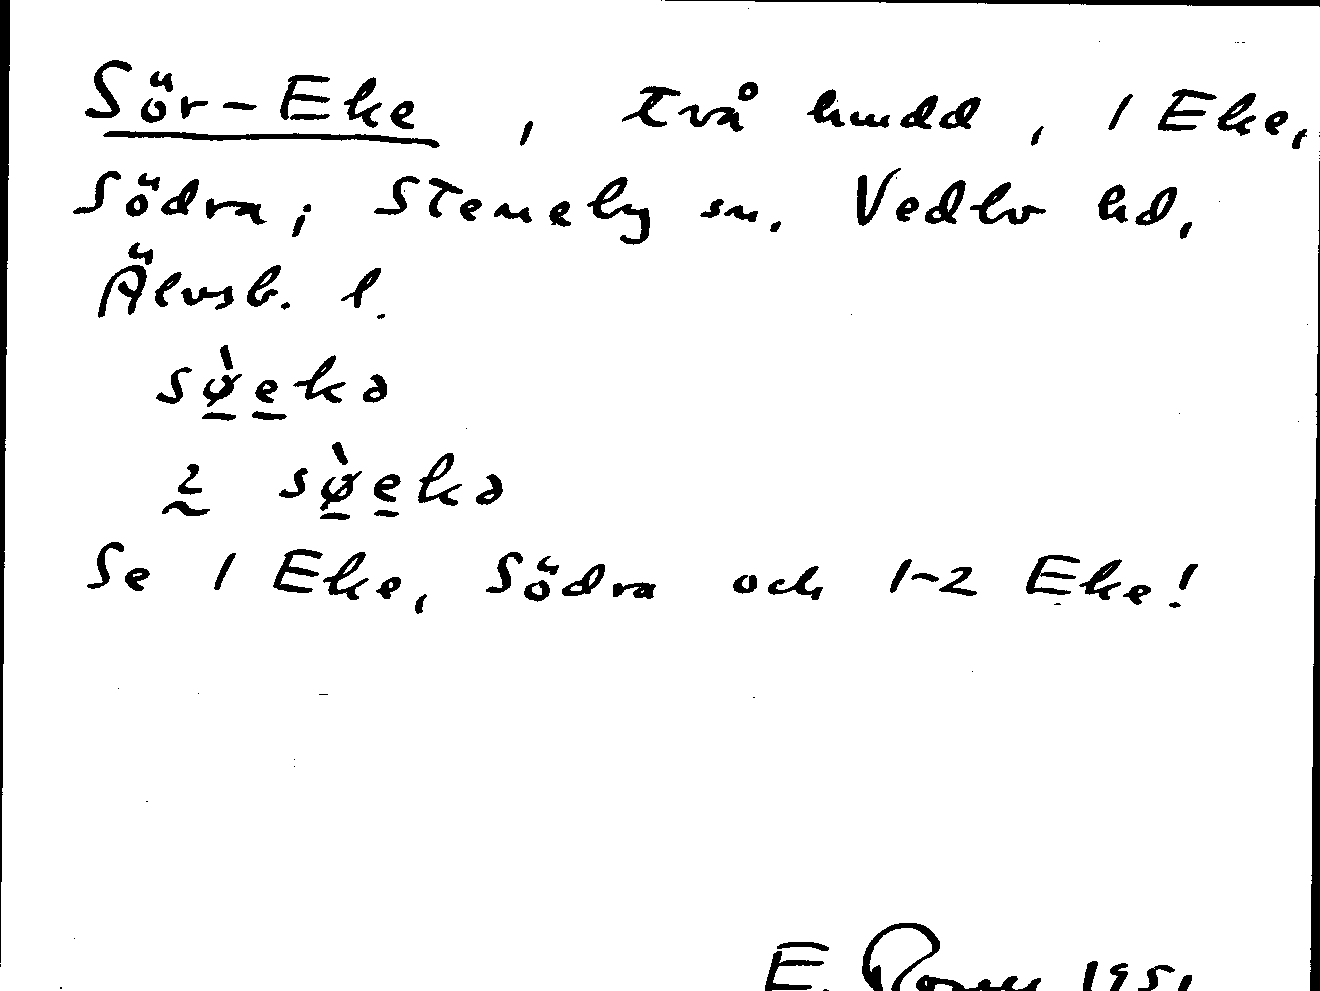 Sör-Eke, två hmdd, 1 Eke,
Södra; Steneby sn. Vedbo hd,
Älvsb. l.
sø̀ekə
2 sø̀ekə
Se 1 Eke, Södra och 1-2 Eke!
E. 1951